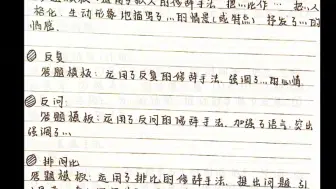 格化,生动形象地描写了…的情景(或特点),抒发了…的
情感。
反复
答题模板:运用了反复的修辞手法,强调了…加心情
反问
答题模板:运用了反问的修辞手法,加强了语气,突出
强调了…
排问比
答题模板:运用了排比的修辞手法,提出问题,引